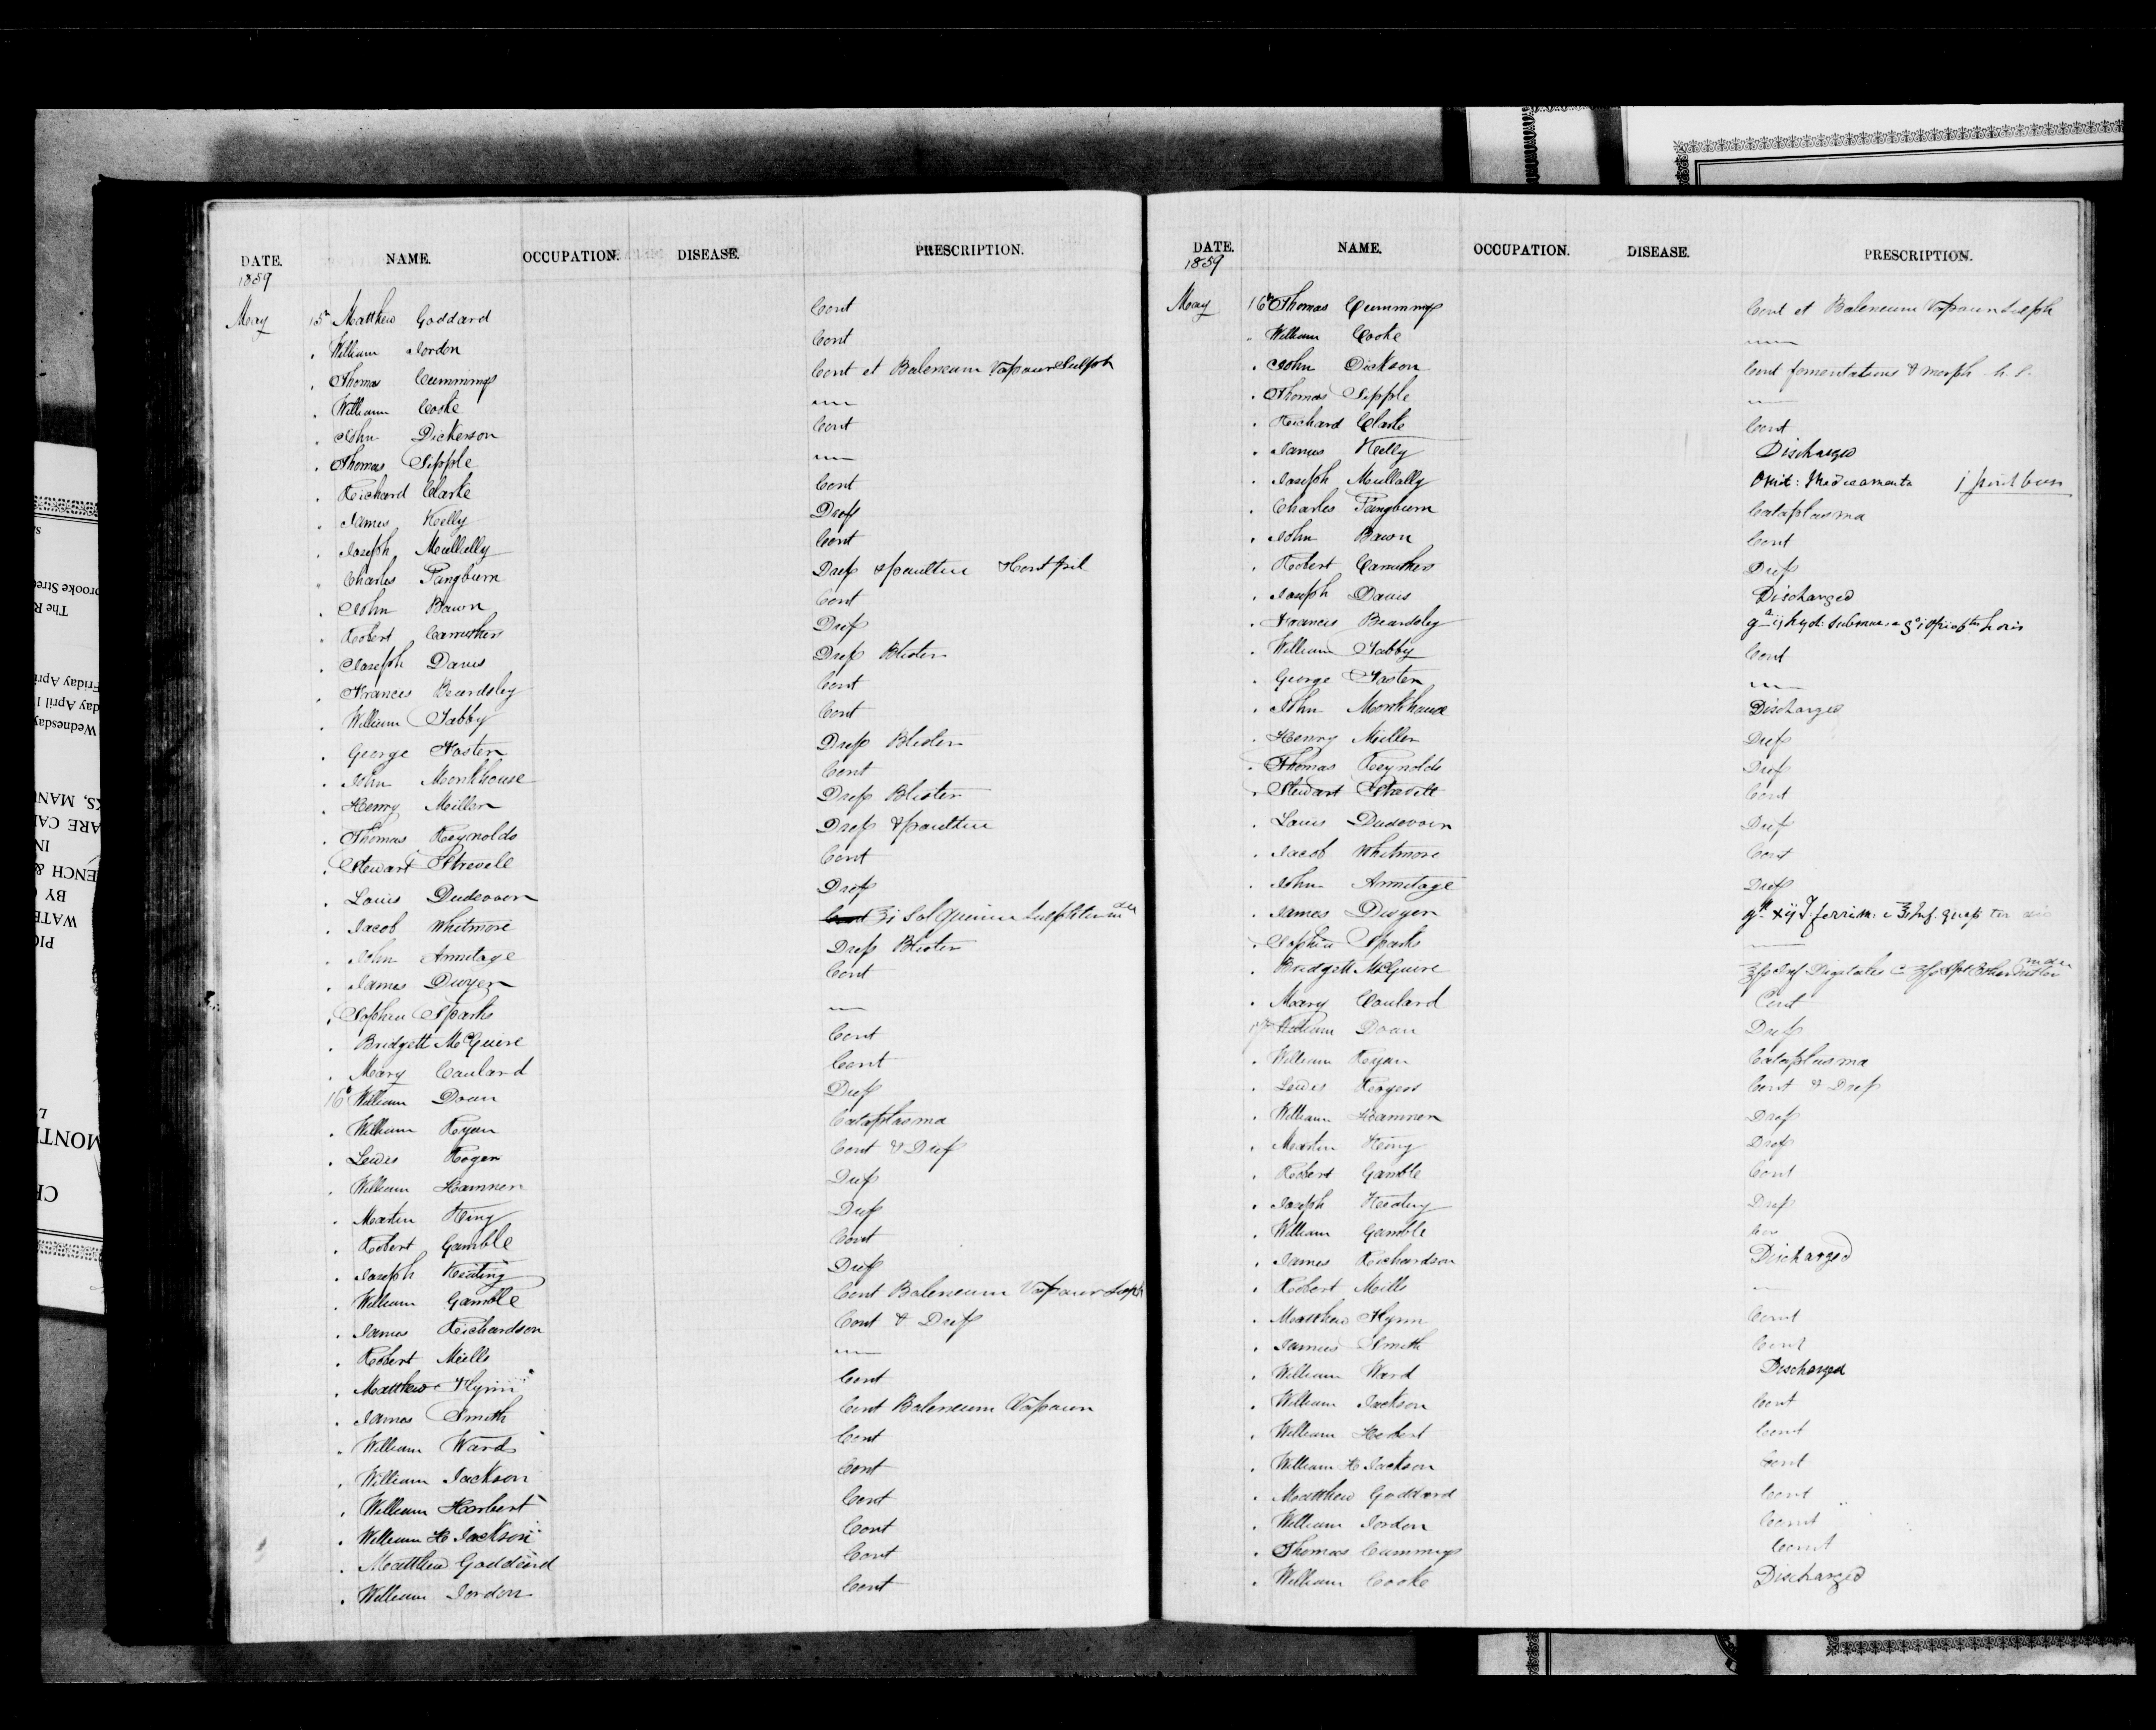 DATE. NAME. OCCUPATION. DISEASE. PRESCRIPTION.
1859
May 15th Matthew Goddard Cont
" William Jordon Cont
" Thomas Cummings Cont et Balencum Vapour Sulph
" William Cooke "
" John Dickerson Cont
" Thomas Sipple "
" Richard Clarke Cont
" James Kelly Dress
" Joseph Mullally Cont
" Charles Pangburn Dress & poultice
" John Bawn Cont
" Robert Carruthers Dress
" Joseph Davis Dress Blister
" Francis Beardsley Cont
" William Tabby Cont
" George Foster Dress Blister
" John Monkhouse Cont
" Henry Miller Dress Blister
" Thomas Reynolds Dress & poultice
" Stewart Strevell Cont
" Louis Dudevoir Dress
" Jacob Whitmore Cont ʒi Sol Quinine Sulph ter in die
" John Armitage Dress Blister
" James Dwyer Cont
" Sophia Sparks "
" Bridgett McGuire Cont
" Mary Coulard Cont
16th William Doan Dress
" William Ryan Cataplasma
" Lewis Roger Cont & Dress
" William Hamner Dress
" Martin King Dress
" Robert Gamble Cont
" Joseph Keating Dress
" William Gamble Cont Balencum Vapour Sulph
" James Richardson Cont & Dress
" Robert Mills "
" Matthew Flynn Cont
" James Smith Cont Balencum Vapour
" William Ward Cont
" William Jackson Cont
" William Harbert Cont
" William H Jackson Cont
" Matthew Goddard Cont
" William Jordon Cont
DATE. NAME. OCCUPATION. DISEASE. PRESCRIPTION.
1859
May 16th Thomas Cummings Cont et Balencum Vapour Sulph
" William Cooke "
" John Dickson Cont fomentations & morph h.s.
" Thomas Sipple "
" Richard Clarke Cont
" James Kelly Discharged
" Joseph Mullally Omit: Medicamenta j pint beer
" Charles Pangburn Cataplasma
" John Bawn Cont
" Robert Carruthers Dress
" Joseph Davis Discharged
" Francis Beardsley
" William Tabby Cont
" George Foster "
" John Monkhouse Discharged
" Henry Miller Dress
" Thomas Reynolds Dress
" Stewart Strevell Cont
" Louis Dudevoir Dress
" Jacob Whitmore Cont
" John Armitage Dress
" James Dwyer
" Sophia Sparks "
" Bridgett McGuire
" Mary Coulard Cont
17th William Doan Dress
" William Ryan Cataplasma
" Lewis Rogers Cont & Dress
" William Hamner Dress
" Martin King Dress
" Robert Gamble Cont
" Joseph Keating Dress
" William Gamble Con
" James Richardson Discharged
" Robert Mills "
" Matthew Flynn Cont
" James Smith Cont
" William Ward Discharged
" William Jackson Cont
" William Herbert Cont
" William H Jackson Cont
" Matthew Goddard Cont
" William Jordon Cont
" Thomas Cummings Cont
" William Cooke Discharged